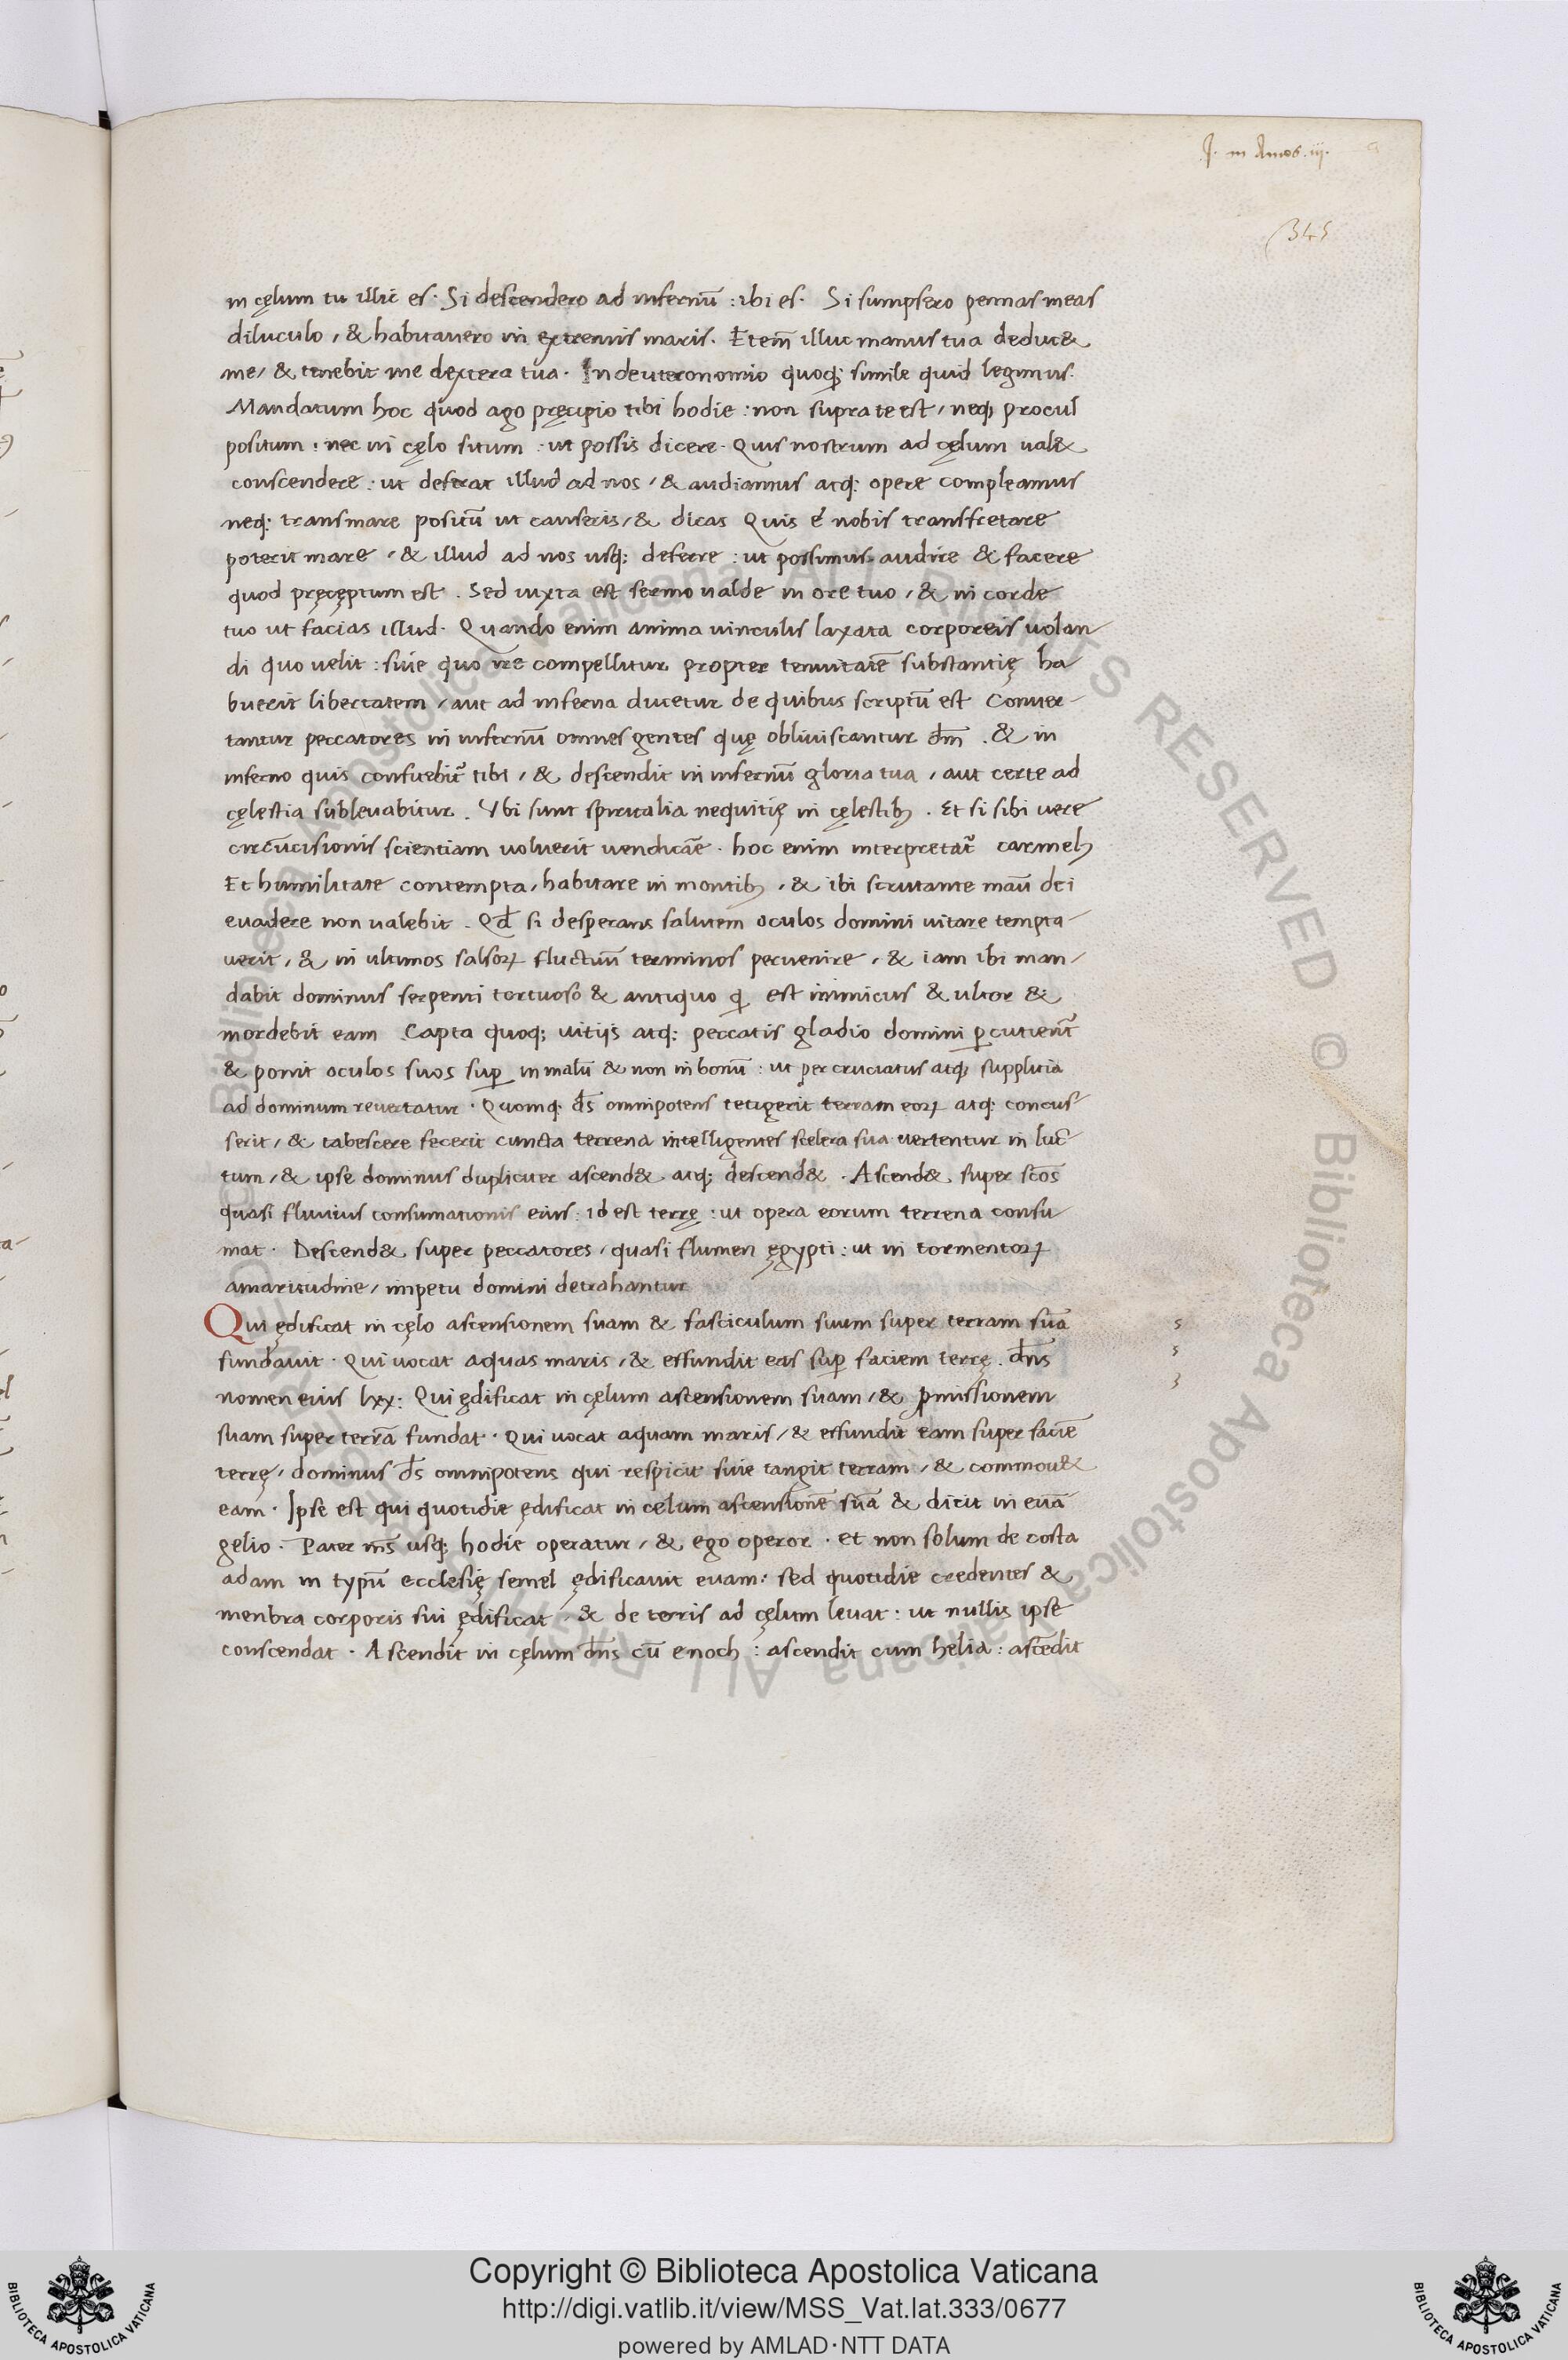 J. in Amos. iij.
345
in cęlum tu illic es. Si descendero ad infernū : ibi es. Si sumpsero pennas meas
diluculo, & habitauero in extremis maris. Etem̄ illuc manus tua deduc&
me, & tenebit me dextera tua. In deuteronomio quoq; simile quid legimus.
Mandatum hoc quod ago pręcipio tibi hodie : non supra te est, neq; procul
positum : nec in cęlo situm : ut possis dicere. Quis nostrum ad cęlum ual&
conscendere : ut deferat illud ad nos, & audiamus atq; opere compleamus
neq; trans mare positū ut causeris, & dicas Quis ē nobis transfretare
poterit mare, & illud ad nos usq; deferre : ut possimus audire & facere
quod pręcęptum est. Sed iuxta est sermo ualde in ore tuo, & in corde
tuo ut facias illud. Quando enim anima uinculis laxata corporeis uolan-
di quo uelit : siue quo ire compellitur propter tenuitatē substantię ha
buerit libertatem, aut ad inferna ducetur de quibus scriptū est Conuer-
tantur peccatores in infernū omnes gentes quę obliuiscantur dm̄. & in
inferno quis confitebit̄ tibi, & descendit in infernū gloria tua, aut certe ad
cęlestia subleuabitur. Vbi sunt spiritalia nequitię in cęlestib;. Et si sibi uere
circūcisionis scientiam uoluerit uendicāe. hoc enim interpretat̄ carmel;
Et humilitate contempta, habitare in montib;, & ibi scrutante maū dei
euadere non ualebit. Qd̄ si desperans salutem oculos domini uitare tempta-
uerit, & in ultimos salsoꝝ fluctuū terminos peruenire, & iam ibi man-
dabit dominus serpenti tortuoso & antiquo q̄ est inimicus & ultor &
mordebit eam Capta quoq; uitijs atq; peccatis gladio domini ꝑcutient̄
& ponit oculos suos suꝑ in malū & non in bonū : ut per cruciatus atq; supplicia
ad dominum reuertatur. Quomq; ds̄ omnipotens tetigerit terram eoꝝ atq; concus-
serit, & tabescere fecerit cuncta terrena intelligentes scelera sua uertentur in luc-
tum, & ipse dominus dupliciter ascend& atq; descend&. Ascend& super scōs
quasi fluuius consumationis eius : id est terrę : ut opera eorum terrena consu-
mat. Descend& super peccatores, quasi flumen ęgypti : ut in tormentoꝝ
amaritudine, impetu domini detrahantur
Qui ędificat in cęlo ascensionem suam & fasciculum suum super terram suā
fundauit. Qui uocat aquas maris, & effundit eas suꝑ faciem terrę. dn̄s
nomen eius lxx : Qui ędificat in cęlum ascensionem suam, & ꝓmissionem
suam super terrā fundat. Qui uocat aquam maris, & effundit eam super faciē
terrę, dominus ds̄ omnipotens qui respicit siue tangit terram, & commou&
eam. Ipse est qui quotidie ędificat in celum ascensionē suā & dicit in euā
gelio. Pater ms̄ usq; hodie operatur, & ego operor. et non solum de costa
adam in typū ecclesię semel ędificauit euam : sed quotidie credentes &
menbra corporis sui ędificat, & de terris ad cęlum leuat : ut nullis ipse
conscendat. Ascendit in cęlum dn̄s cū enoch : ascendit cum helia : ascēdit
Copyright © Biblioteca Apostolica Vaticana
http://digi.vatlib.it/view/MSS_Vat.lat.333/0677
powered by AMLAD·NTT DATA